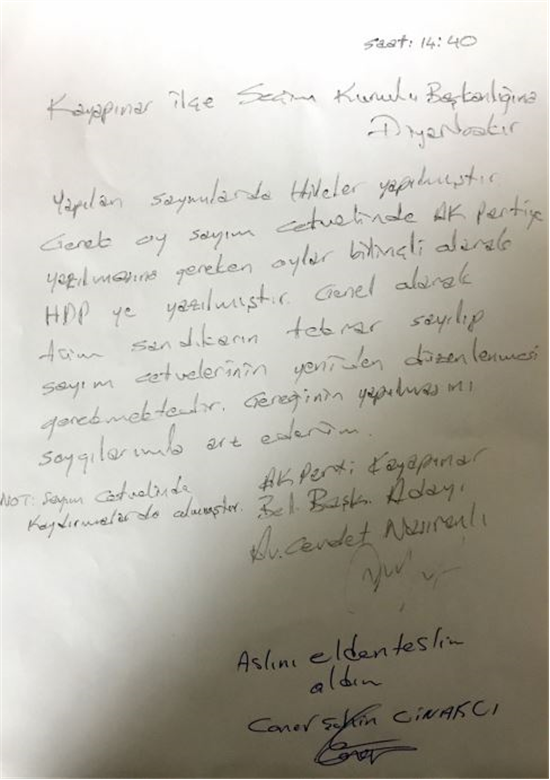 saat: 14:40
Kayapınar ilçe Seçim Kurulu Başkanlığına
Diyarbakır
Yapılan sayımlarda Hileler yapılmıştır.
Gerek oy sayım cetvelinde AK Partiye
yazılmasına gereken oylar bilinçli olarak
HDP ye yazılmıştır. Genel olarak
tüm sandıkların tekrar sayılıp
sayım cetvelerinin yeniden düzenlenmesi
gerekmektedir. Gereğinin yapılmasını
saygılarımla arz ederim.
AK Parti Kayapınar
NOT: Sayım Cetvelinde
Bel. Başk. Adayı
Kaydırmalarda olmuştur.
Av. Cevdet Nasıranlı
Aslını elden teslim
aldım
Caner Şahin CINAKCI